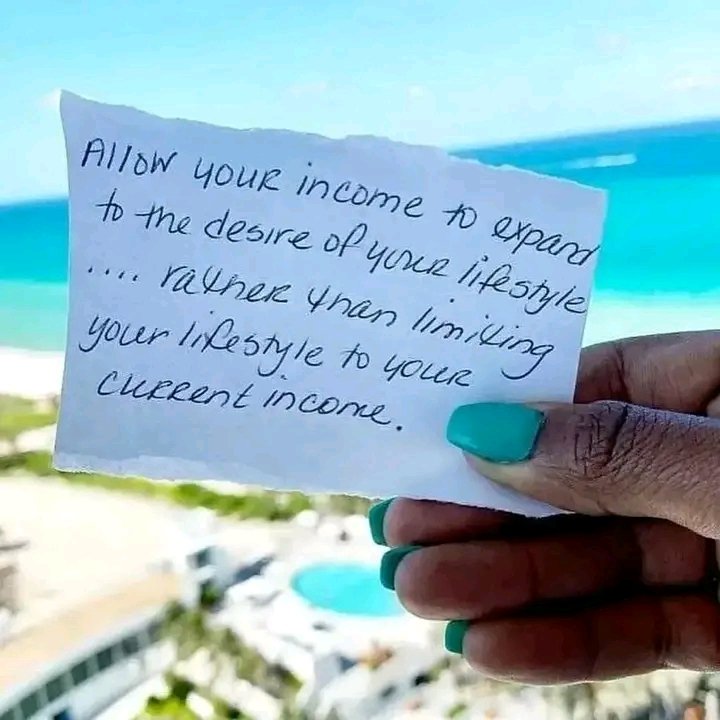 Allow your income to expand
to the desire of your lifestyle
.... rather than limiting
your lifestyle to your
current income.